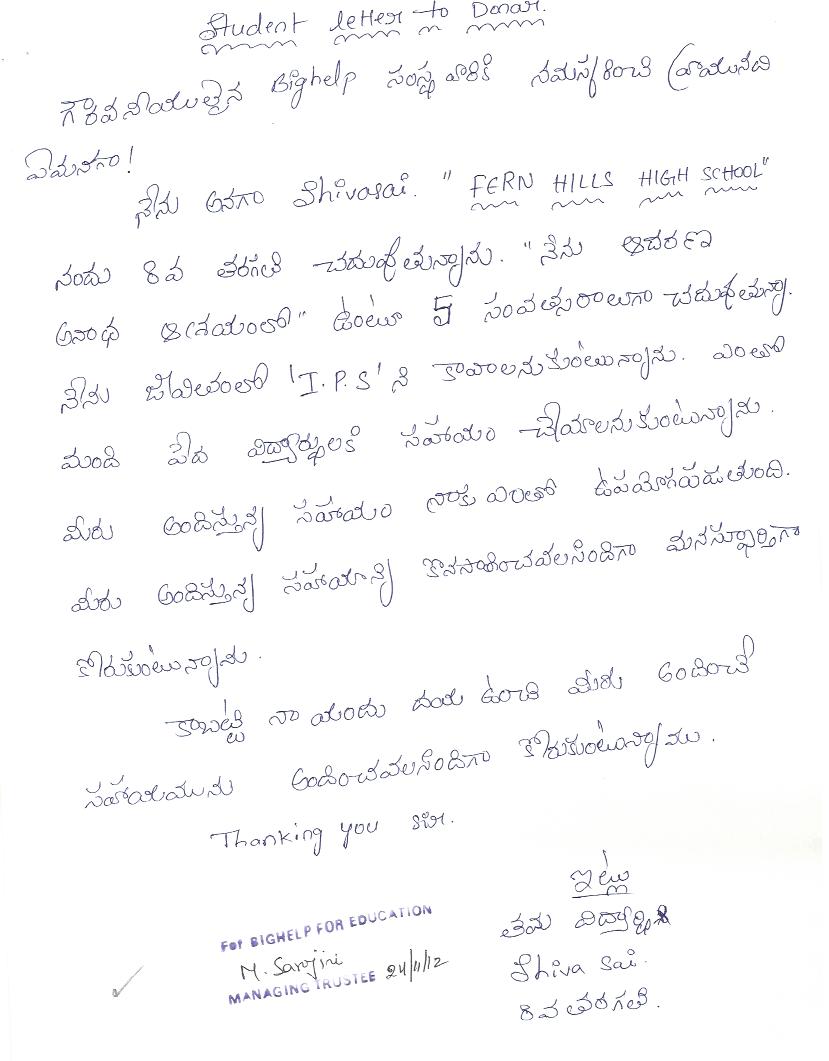 Student letter to Donar.
గౌరవనీయులైన Bighelp సంస్థ వారికి నమస్కరించి వ్రాయునది
ఏమనగా!
నేను అనగా Shivasai. "FERN HILLS HIGH SCHOOL"
నందు 8వ తరగతి చదువుతున్నాను. "నేను ఆదరణ
అనాధ ఆశ్రయంలో" ఉంటూ 5 సంవత్సరాలుగా చదువుతున్నా.
నేను జీవితంలో 'I.P.S' ని కావాలనుకుంటున్నాను. ఎంతో
మంది పేద విద్యార్థులకి సహాయం చేయాలనుకుంటున్నాను.
మీరు అందిస్తున్న సహాయం నాకు ఎంతో ఉపయోగపడుతుంది.
మీరు అందిస్తున్న సహాయాన్ని కొనసాగించవలసిందిగా మనస్ఫూర్తిగా
కోరుకుంటున్నాను.
కాబట్టి నా యందు దయ ఉంచి మీరు అందించే
సహాయమును అందించవలసిందిగా కోరుకుంటున్నాము.
Thanking you
ఇట్లు
తమ విద్యార్థి
Shiva sai.
8వ తరగతి.
For BIGHELP FOR EDUCATION
M. Sarojini
MANAGING TRUSTEE 24/11/12